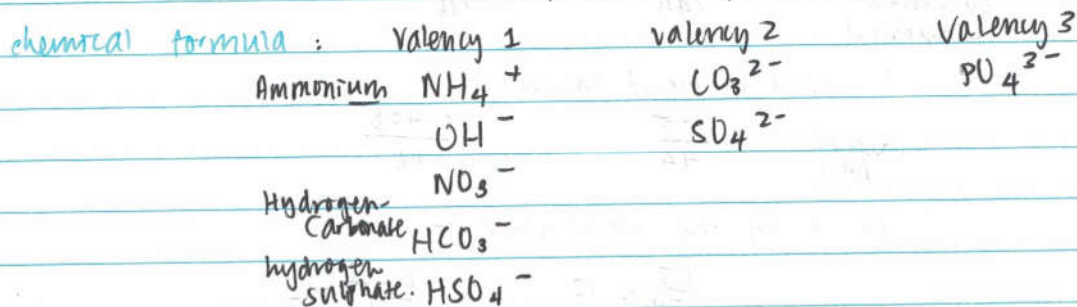 chemical formula : Valency 1 valency 2 Valency 3
Ammonium NH₄⁺ CO₃²⁻ PO₄³⁻
OH⁻ SO₄²⁻
NO₃⁻
Hydrogen-
Carbonate HCO₃⁻
hydrogen
sulphate. HSO₄⁻